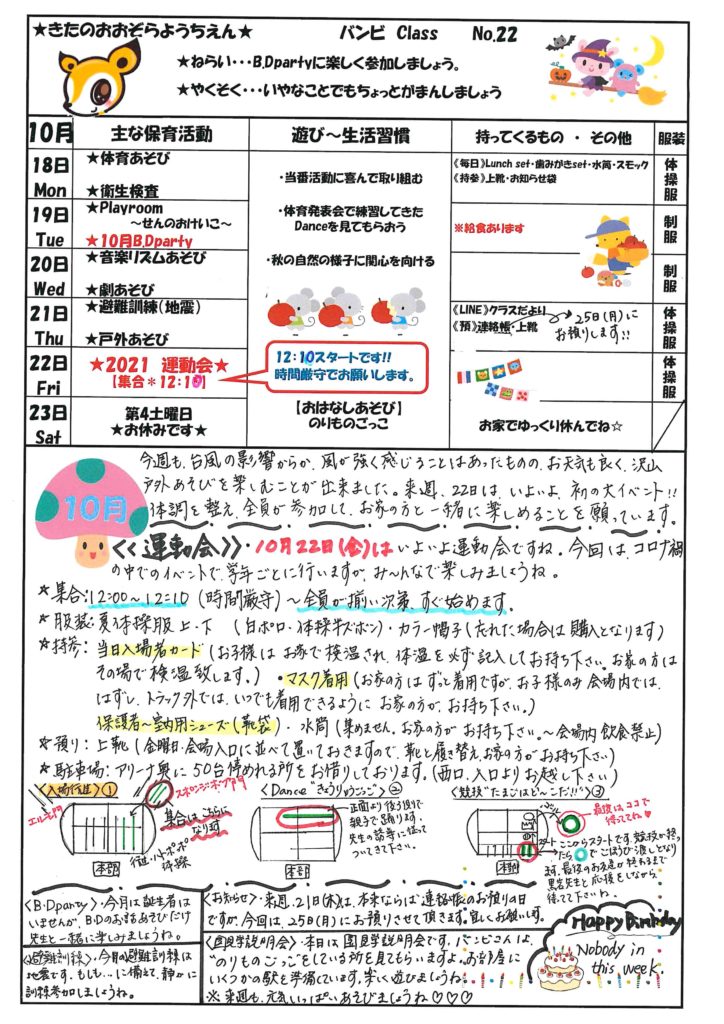 ★きたのおおぞらようちえん★ バンビ Class No.22
★ねらい・・・B,Dpartyに楽しく参加しましょう。
★やくそく・・・いやなことでもちょっとがまんしましょう
10月 主な保育活動 遊び～生活習慣 持ってくるもの ・ その他 服装
18日 Mon
★体育あそび
★衛生検査
19日 Tue
★Playroom
～せんのおけいこ～
★10月B,Dparty
20日 Wed
★音楽リズムあそび
★劇あそび
21日 Thu
★避難訓練(地震)
★戸外あそび
22日 Fri
★2021 運動会★
【集合＊12:10】
12:10スタートです!!
時間厳守でお願いします。
23日 Sat
第4土曜日
★お休みです★
・当番活動に喜んで取り組む
・体育発表会で練習してきた
Danceを見てもらおう
・秋の自然の様子に関心を向ける
【おはなしあそび】
のりものごっこ
《毎日》Lunch set・歯みがきset・水筒・スモック
《持参》上靴・お知らせ袋
※給食あります
《LINE》クラスだより
《預》連絡帳・上靴
25日(月)に
お預りします!!
お家でゆっくり休んでね☆
体操服
制服
制服
体操服
体操服
10月
今週も、台風の影響からか、風が強く感じることはあったものの、お天気も良く、沢山
戸外あそびを楽しむことが出来ました。来週、22日は、いよいよ、初の大イベント!!
体調を整え、全員が参加して、お家の方と一緒に楽しめることを願っています。
《運動会》・10月22日(金)はいよいよ運動会ですね。今回は、コロナ禍
の中でのイベントで、学年ごとに行いますが、み～んなで楽しみましょうね。
☆集合:12:00～12:10 (時間厳守)～全員が揃い次第、すぐ始めます。
☆服装:夏体操服上・下 (白ポロ・体操半ズボン)・カラー帽子(忘れた場合は購入となります)
☆持参:当日入場者カード(お子様はお家で検温され、体温を必ず記入してお持ち下さい。お家の方は
その場で検温致します。)・マスク着用(お家の方はずっと着用ですが、お子様のみ会場内では、
はずし、トラック外では、いつでも着用できるようにお家の方が、お持ち下さい。)
保護者～室内用シューズ(靴袋)・水筒(集めません。お家の方がお持ち下さい。～会場内飲食禁止)
☆預り:上靴(金曜日、会場入口に並べて置いておきますので、靴と履き替え、お家の方がお持ち下さい)
☆駐車場:アリーナ奥に50台停めれる所をお借りしております。(西口、入口よりお越し下さい)
〈入場行進〉①
エルモ門
スポンジ・ボブ門
集合はこちらに
なります
本部
〈Dance"きょうりゅうごっこ"〉②
正面より後ろ周りで
親子で踊ります。
先生の誘導に従って
ついてきて下さい。
本部
〈競技"たまごはど～こだ!!"〉③
最後はココで
待っててね♡
スタート ここからスタートです。競技が終っ
たら○でごほうび渡しとなり
ます。最後のお友達が終わるまで
里芳先生と応援をしながら、
待ってて下さいね。
本部
〈B・Dparty〉・今月は誕生者は
いませんが、B・Dのお話あそびだけ
先生と一緒に楽しみましょうね。
〈避難訓練〉・今月の避難訓練は
地震です。もしも…に備えて、静かに
訓練参加しましょうね。
〈お知らせ〉・来週、21日(木)は、本来ならば連絡帳のお預りの日
ですが、今回は、25日(月)にお預りさせて頂きます。宜しくお願いします。
〈園見学説明会〉・本日は園見学説明会です。バンビさんは、
"のりものごっこ"をしている所を見てもらいますよ。お部屋に
いくつかの駅を準備しています。楽しく遊びましょうね。
※来週も、元気いっぱいあそびましょうね♡♡♡
Happy Birthday
Nobody in
this week.